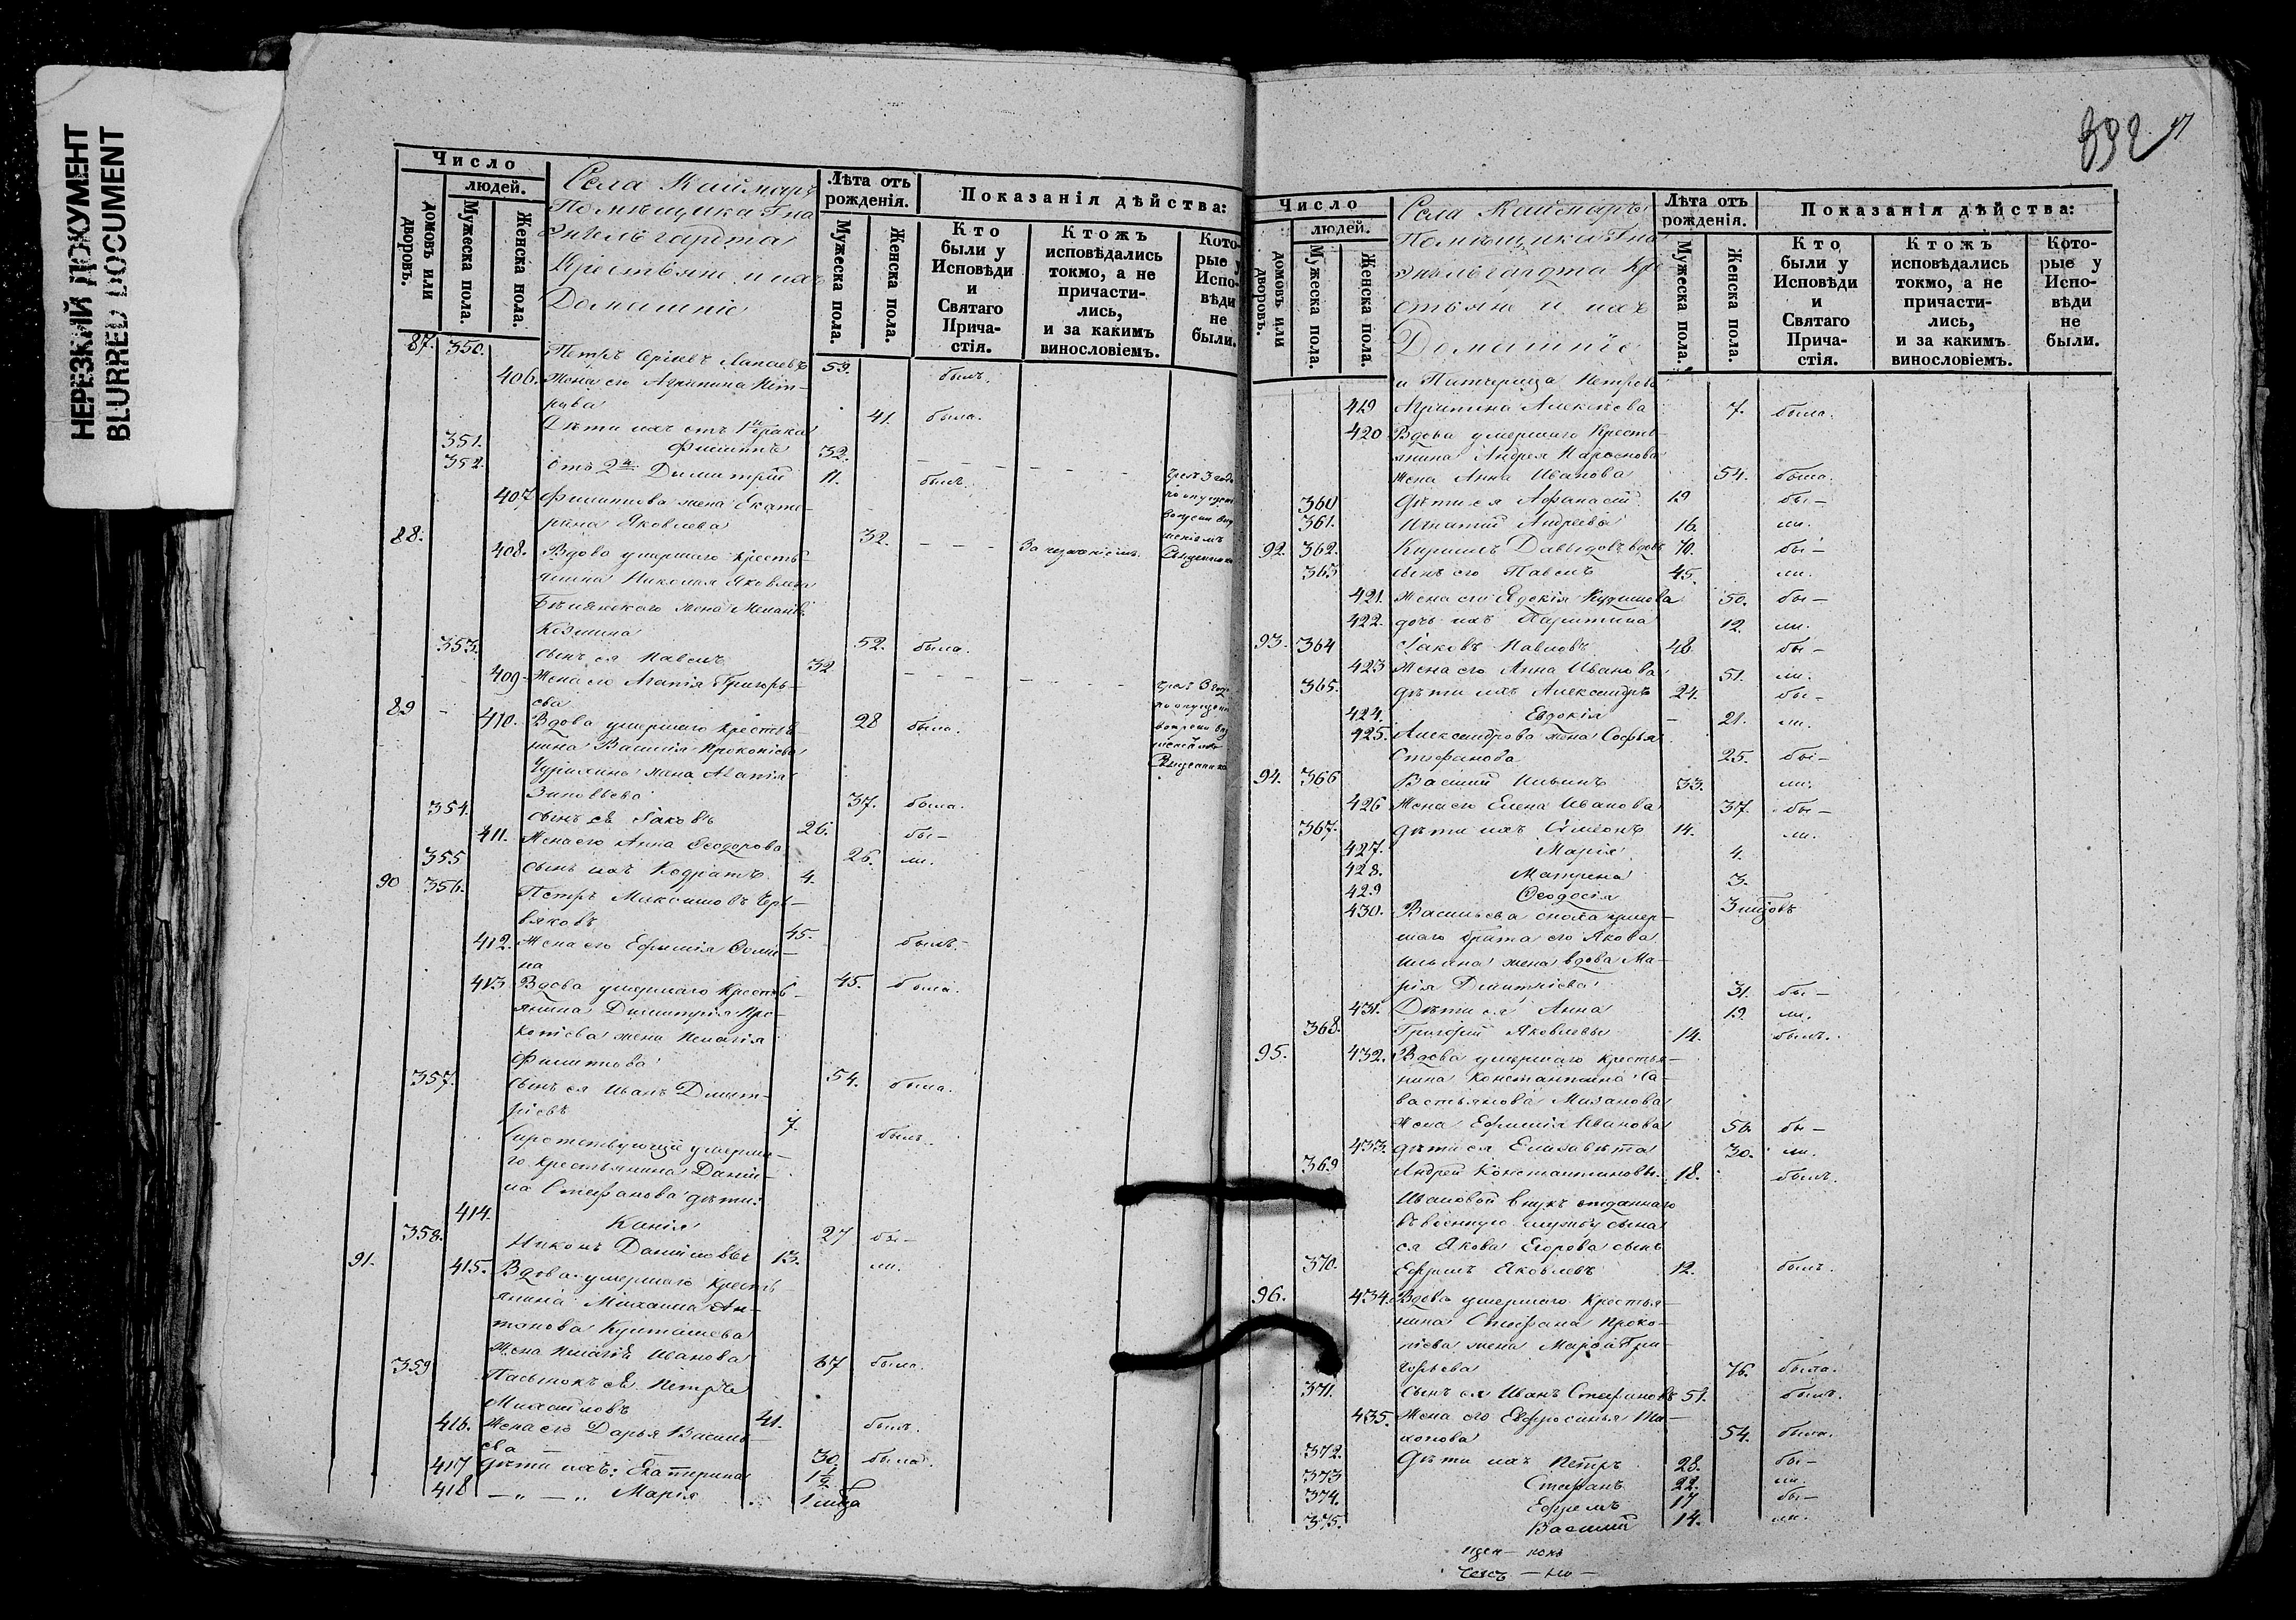 НЕРЕЗКИЙ ДОКУМЕНТ
BLURRED DOCUMENT
Число
людей.
домовъ или дворовъ.
Мужеска пола.
Женска пола.
Села Каймаръ
Помѣщика Гна
Энгельгардта
Крестьяне и ихъ
Домашніе
Лѣта отъ рожденія.
Мужеска пола.
Женска пола.
Показанія дѣйства:
Кто были у Исповѣди и Святаго Прича-стія.
Ктожъ исповѣдались токмо, а не причасти-лись, и за какимъ винословіемъ.
Кото-рые у Испо-вѣди не были.
87. 350. Петръ 59. былъ.
406. Жена его Агрипина Пет-
рова 41. была.
Дѣти ихъ отъ 1го брака
351. Филиппъ 32.
352. отъ 2го Димитрій 11. былъ.
407 Филиппова жена Екате-
рина Яковлева 32.
88. 408. Вдова умершаго крестья-
янина Николая Яковлева
жена
Козмина 52. была.
353. сынъ ея Павелъ 32
409 Жена его Агапія Григорь-
ева 28 была.
89 - 410. Вдова умершаго крестья-
нина Василія Прокопіева
жена Агапія
Зиновьева 37. была.
354. сынъ ея Іаковъ 26. бы-
411. Жена его Анна Ѳеодорова 26. ли.
355 сынъ ихъ Кодратъ 4.
90 356. Петръ Максимовъ Чер-
вяковъ 45. былъ.
412. Жена его Ефимія Ѳоми-
на 45. была
413 Вдова умершаго крестья-
янина Димитрія Про-
копіева жена Пелагія
Филиппова 54. была.
357. сынъ ея Иванъ Димит-
ріевъ 7. былъ.
Сиротствующіе умерша-
го крестьянина Дании-
ла Стефанова дѣти:
414. 27 бы-
358. Никонъ Данииловы 13. ли.
91. 415. Вдова умершаго крестья-
янина Михаила Ан-
тонова
жена Пелагія Иванова 67 была.
359 Пасынокъ ея Петръ
Михайловъ 41. былъ.
416. Жена его Дарья Василь-
ева 30. была.
417 дѣти ихъ: Екатерина 1 1/2
418 — „ — „ Марія
392
Число
людей.
домовъ или дворовъ.
Мужеска пола.
Женска пола.
Села Каймаръ
Помѣщика Гна
Энгельгардта Кре
стьяне и ихъ
Домашніе
Лѣта отъ рожденія.
Мужеска пола.
Женска пола.
Показанія дѣйства:
Кто были у Исповѣди и Святаго Прича-стія.
Ктожъ исповѣдались токмо, а не причасти-лись, и за какимъ винословіемъ.
Кото-рые у Испо-вѣди не были.
и Патчерица Петрова
419 Агрипина Алексѣева 7. была.
420 Вдова умершаго кресть-
янина Андрея
жена Анна Иванова 54. была.
360 Дѣти ея Афанасій 19 бы-
361. Игнатій Андреевы 16. ли.
92. 362. Кириллъ Давыдовъ вдовъ 70. бы-
363 сынъ его Павелъ 45. ли.
421. Жена его Евдокія 50. бы-
422. дочь ихъ 12. ли.
93. 364 Іаковъ Павловъ 48. бы-
423 Жена его Анна Иванова 51. ли.
365. дѣти ихъ Александръ 24. бы-
424. Евдокія 21. ли.
425. Александрова жена Софья
Стефанова 25. бы-
94. 366 Василій Ильинъ 33. ли.
426 Жена его Елена Иванова 37. бы-
367. дѣти ихъ Симеонъ 14. ли.
427. Марія 4.
428. Матрена 3.
429 Ѳеодосія
430. Васильева снoха умер-
шаго брата его Якова
Ильина жена вдова Ма-
рія Дмитріева 31. бы-
431. Дѣти ея Анна 19. ли.
368. Григорій Яковлевы 14. былъ.
95. 432. Вдова умершаго крестья-
нина Константина Са-
вастьянова
жена Ефимія Иванова 56. бы-
433. дѣти ея Елизавета 30. ли.
369 Андрей Константиновы 18. былъ.
Ивановой внукъ отданнаго
въ военную службу сына
ея Якова Егорова сынъ
370. Ефремъ Яковлевъ 12. былъ.
96. 434. Вдова умершаго крестья-
нина Стефана Проко-
піева жена Марфа Гри-
горьева 76. была.
371. сынъ ея Иванъ Стефановъ 51. былъ.
435. Жена его Евфросинья Ти-
хонова 54. была.
372. Дѣти ихъ Петръ 28. бы-
373 Стефанъ 22. ли.
374. Ефремъ 17 бы-
375. Василій 14. ли.